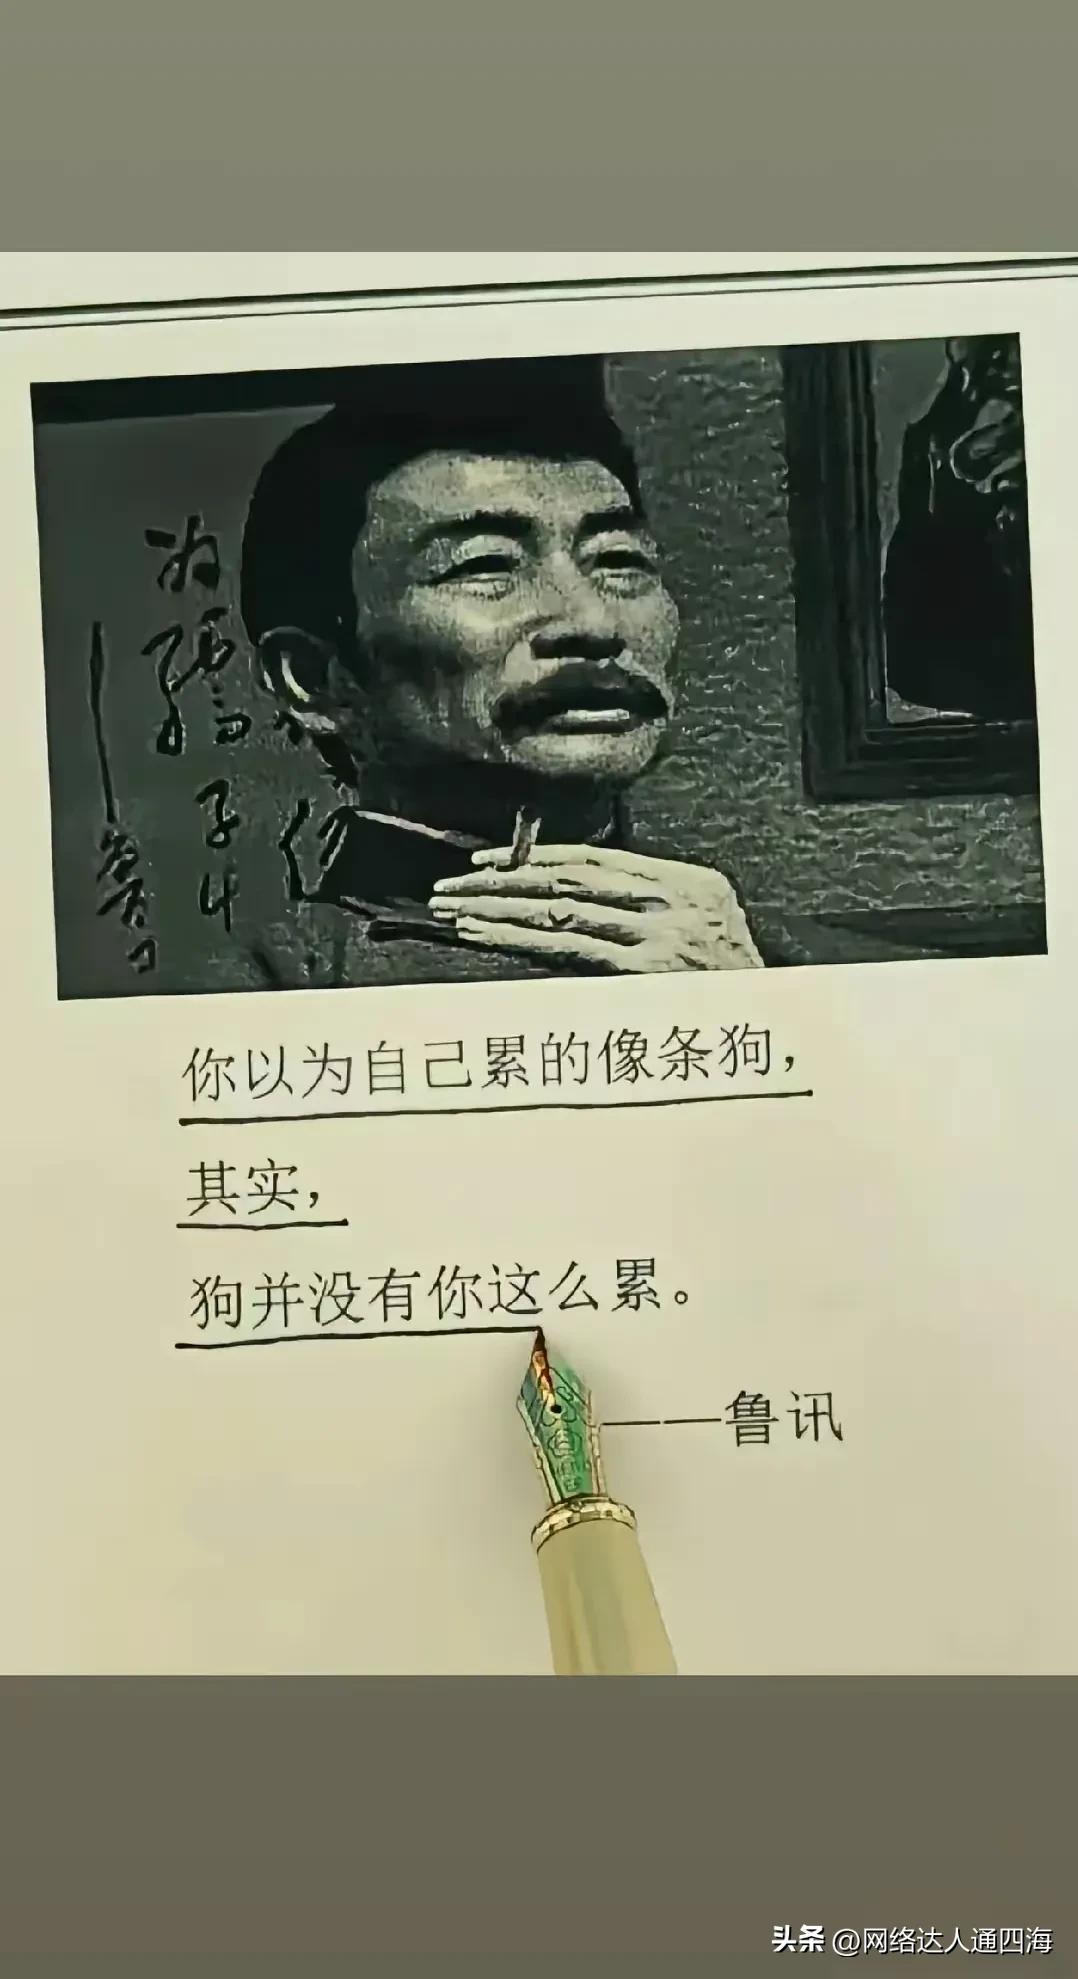 你以为自己累的像条狗，
其实，
狗并没有你这么累。
——鲁讯
头条 @网络达人通四海